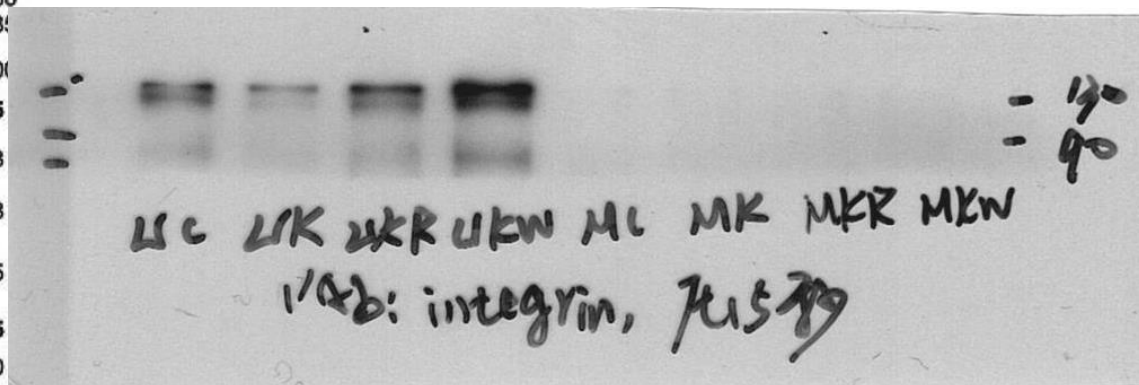 130
90
UC UK UKR UKW MC MK MKR MKW
1'Ab: integrin,